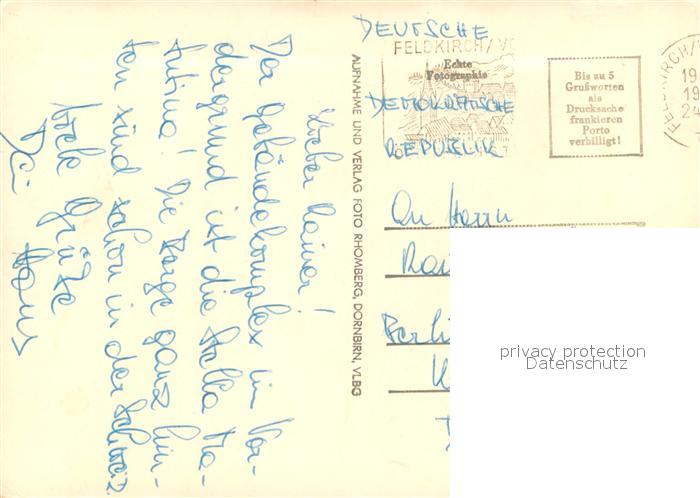 Lieber Rainer!
Der Gebäudekomplex im Vor-
dergrund ist die Stella Ma-
tutina! Die Berge ganz hin-
ten sind schon in der Schweiz.
Viele Grüße
Dein Hans
AUFNAHME UND VERLAG FOTO RHOMBERG, DORNBIRN, VLBG
DEUTSCHE
FELDKIRCH/VO
Echte
Fotographie
DEMOKRATISCHE
REPUBLIK
Bis zu 5
Grußworten
als
Drucksache
frankieren
Porto
verbilligt!
FELDKIRCH/
19
19
24
An Herrn
Rai
Berli
privacy protection
Datenschutz